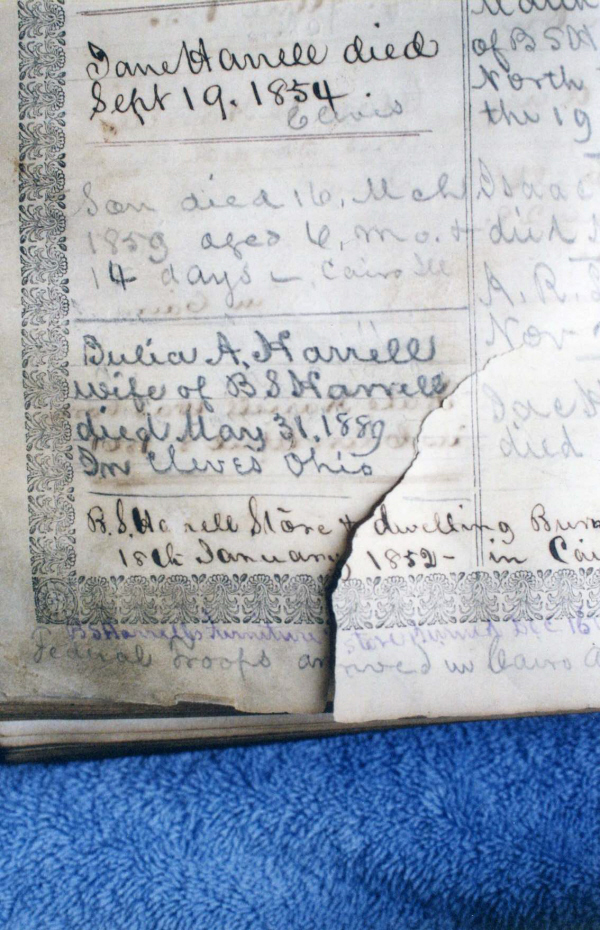 Jane Harrell died
Sept 19. 1854.
Son died 16, Mch
1859 aged 6, mo. +
14 days — Cairo Ill
Julia A. Harrell
wife of B S Harrell
died May 31. 1889
In Cleves Ohio
B. S. Harrell Store + dwelling Burn
18th January 1852 - in Cai
BS Harrell's furniture store Burned Dec
Federal troops arrived in Cairo A
March
of B S H
North
the 19
Isaac
died
A. R.
Nov
Jack
died